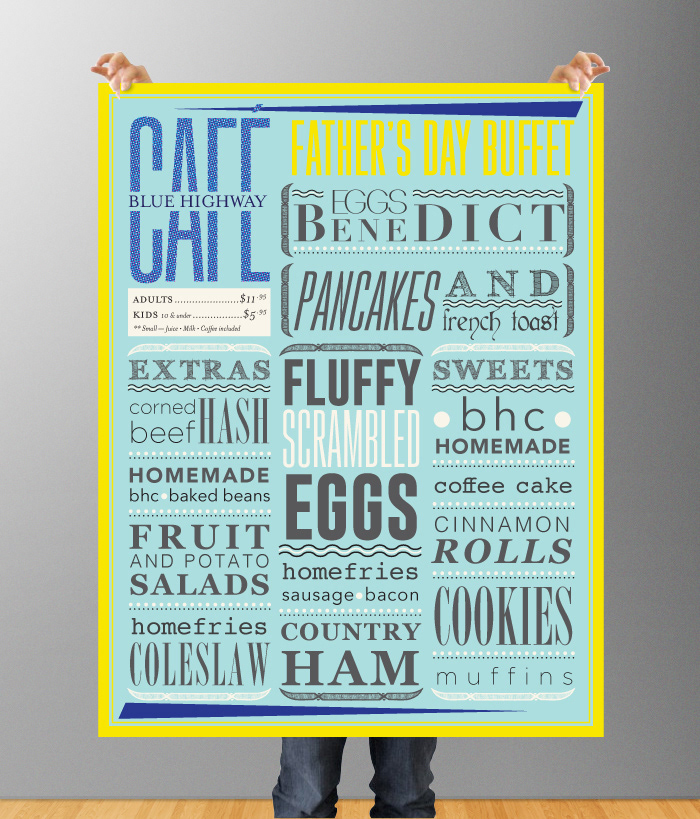 CAFÉ
BLUE HIGHWAY
CAFÉ
ADULTS......................$11.95
KIDS 10 & under.................$5.95
** Small — Juice • Milk • Coffee included
FATHER'S DAY BUFFET
EGGS
BENEDICT
PANCAKES AND
french toast
EXTRAS
corned
beef HASH
HOMEMADE
bhc • baked beans
FRUIT
AND POTATO
SALADS
homefries
COLESLAW
FLUFFY
SCRAMBLED
EGGS
homefries
sausage • bacon
COUNTRY
HAM
SWEETS
• bhc •
HOMEMADE
coffee cake
CINNAMON
ROLLS
COOKIES
muffins